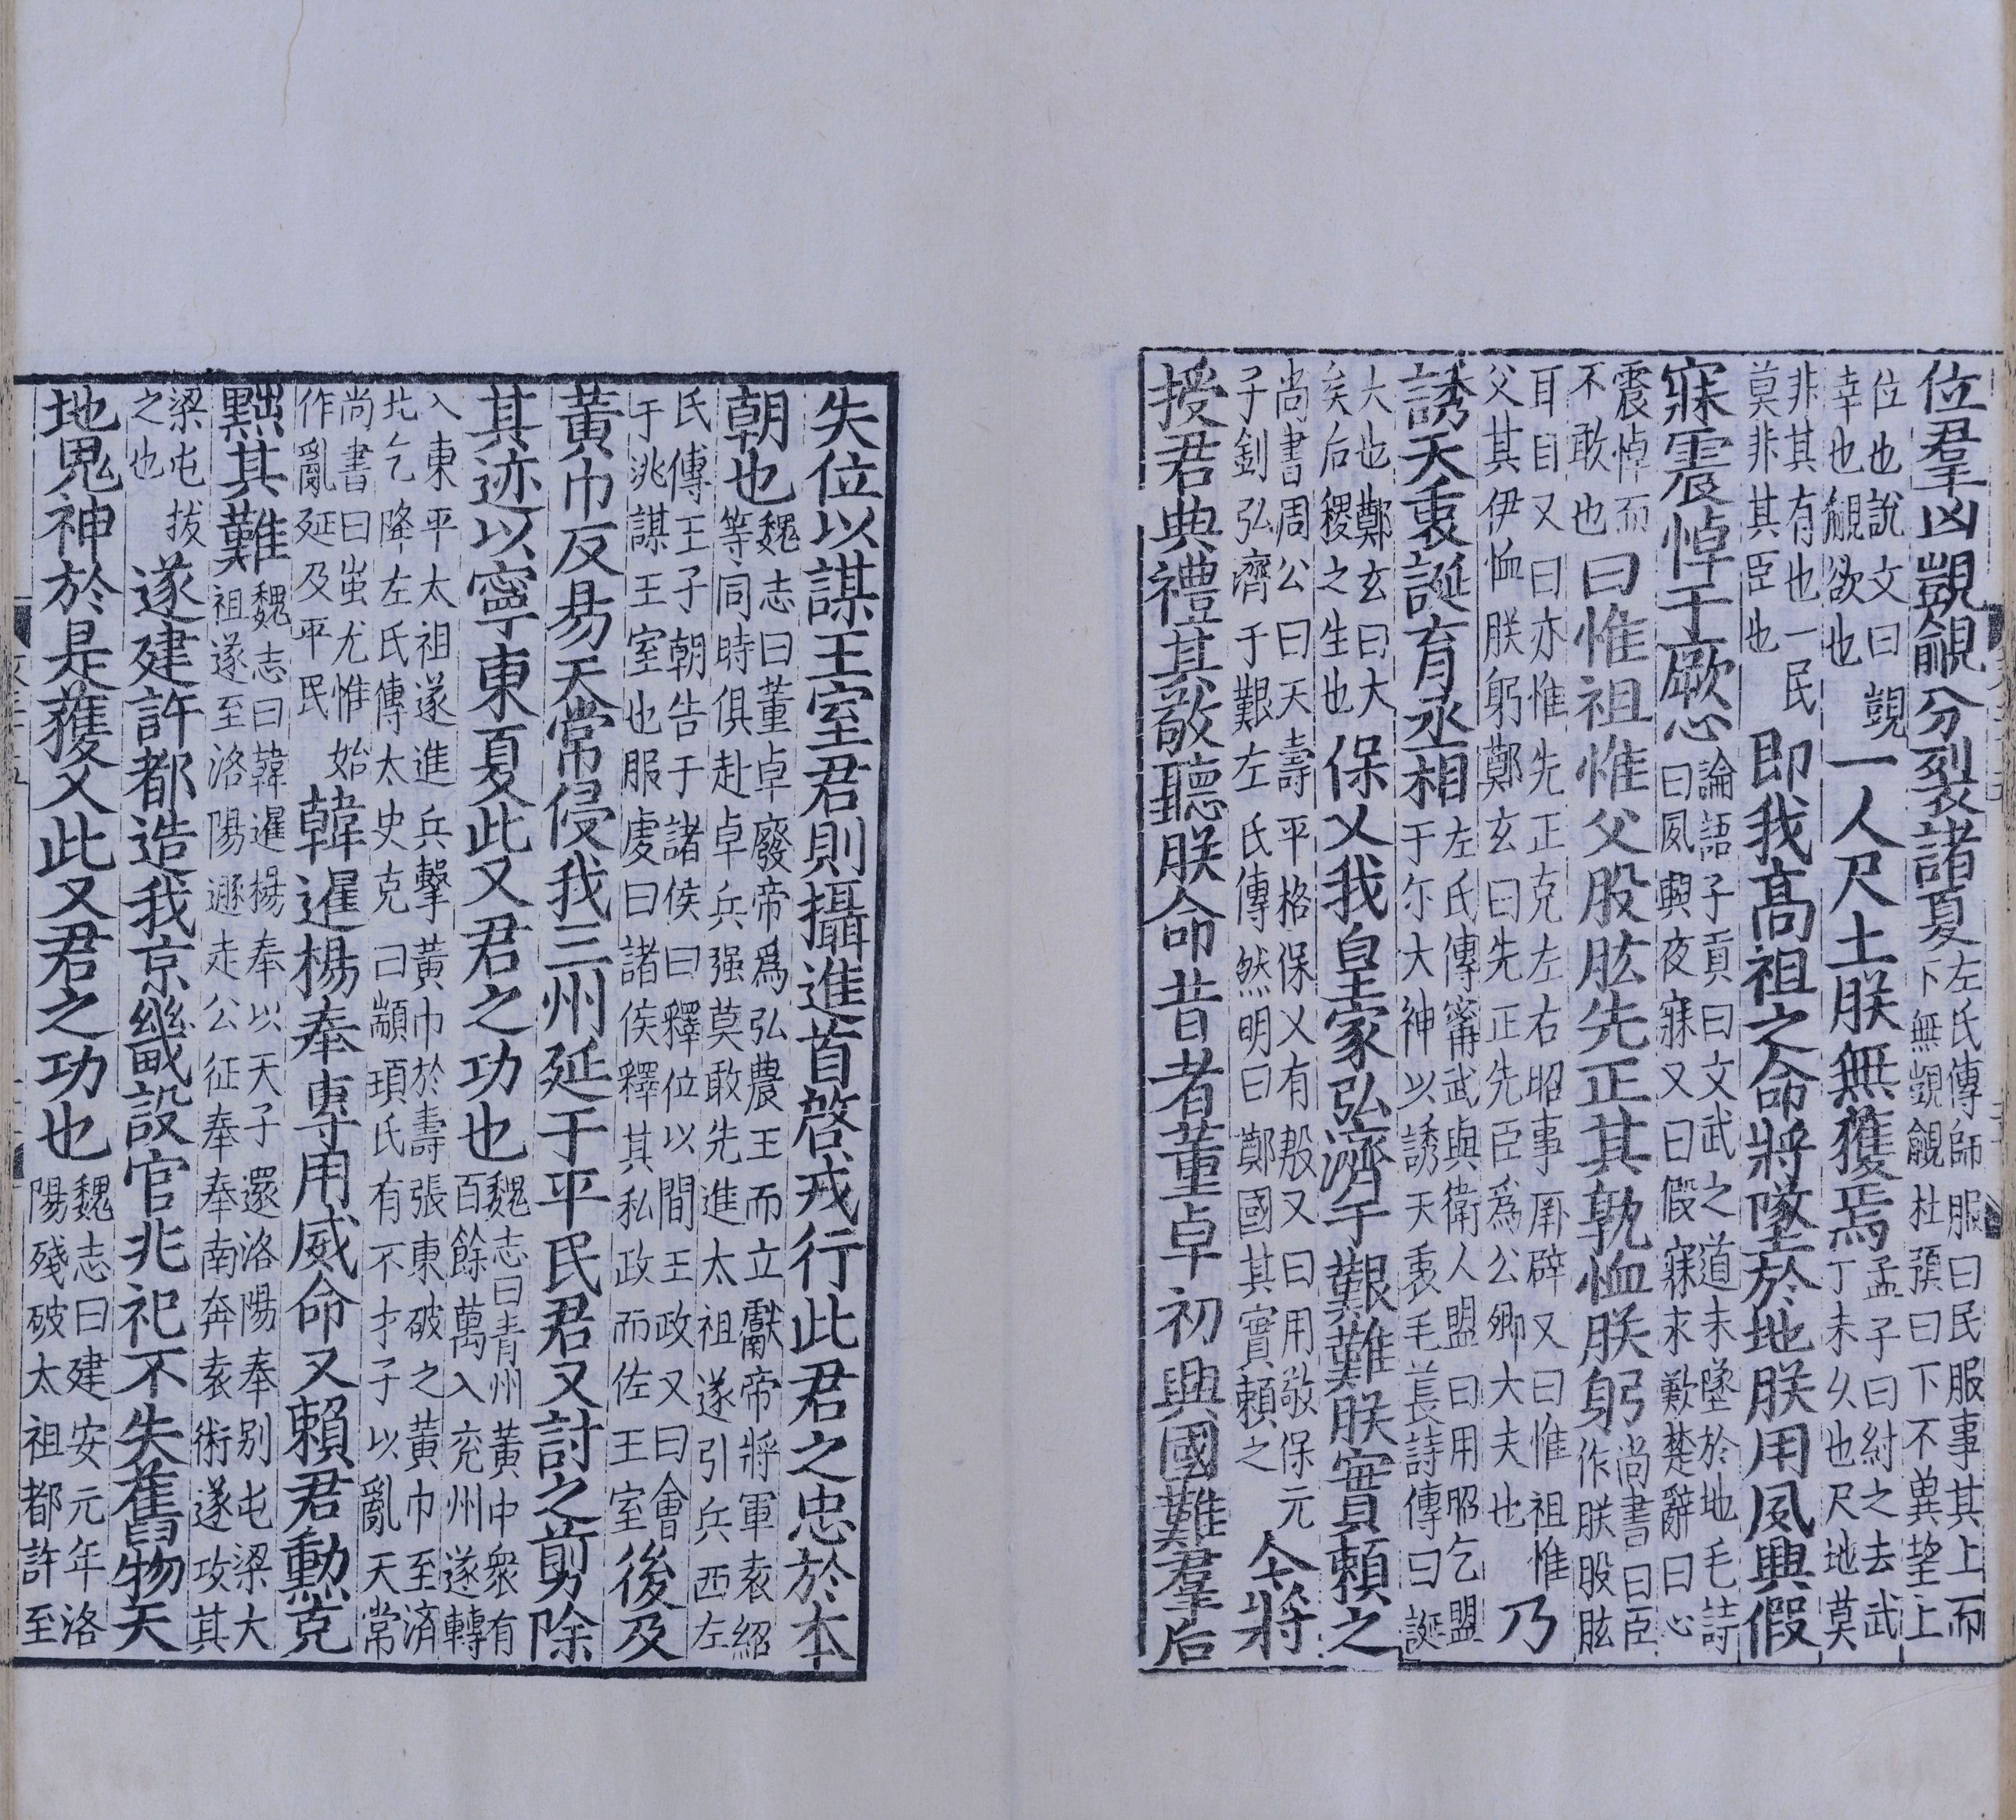 位羣凶覬覦分裂諸夏左氏傳師服曰民服事其上而
下無覬覦杜預曰下不兾望上
位也說文曰覬
幸也覦欲也
一人尺土朕無獲焉孟子曰紂之去武
丁未乆也尺地莫
非其有也一民
莫非其臣也
即我高祖之命將墜於地朕用夙興假
寐震悼于厥心論語子貢曰文武之道未墜於地毛詩
曰夙興夜寐又曰假寐永歎楚辭曰心
震悼而
不敢也
曰惟祖惟父股肱先正其孰恤朕躬尚書曰臣
作朕股肱
耳目又曰亦惟先正克左右昭事厥辟又曰惟祖惟
父其伊恤朕躬鄭玄曰先正先臣爲公卿大夫也
乃
誘天衷誕育丞相左氏傳甯武與衛人盟曰用昭乞盟
于尓大神以誘天衷毛萇詩傳曰誕
大也鄭玄曰大
矣后稷之生也
保乂我皇家弘濟于艱難朕實賴之
尚書周公曰天壽平格保乂有殷又曰用敬保元
子釗弘濟于艱左氏傳然明曰鄭國其實賴之
今將
授君典禮其敬聽朕命昔者董卓初興國難羣后
失位以謀王室君則攝進首啓戎行此君之忠於本
朝也魏志曰董卓廢帝爲弘農王而立獻帝將軍袁紹
等同時俱赴卓兵强莫敢先進太祖遂引兵西左
氏傳王子朝告于諸侯曰釋位以間王政又曰會
于洮謀王室也服虔曰諸侯釋其私政而佐王室
後及
黃巾反易天常侵我三州延于平民君又討之剪除
其迹以寧東夏此又君之功也魏志曰青州黃巾衆有
百餘萬入兖州遂轉
入東平太祖遂進兵擊黃巾於壽張東破之黃巾至済
北乞降左氏傳太史克曰顓頊氏有不才子以亂天常
尚書曰蚩尤惟始
作亂延及平民
韓暹楊奉專用威命又賴君勳克
黜其難魏志曰韓暹楊奉以天子還洛陽奉别屯梁大
祖遂至洛陽暹走公征奉奉南奔袁術遂攻其
梁屯拔
之也
遂建許都造我京畿設官兆祀不失舊物天
地鬼神於是獲乂此又君之功也魏志曰建安元年洛
陽殘破太祖都許至